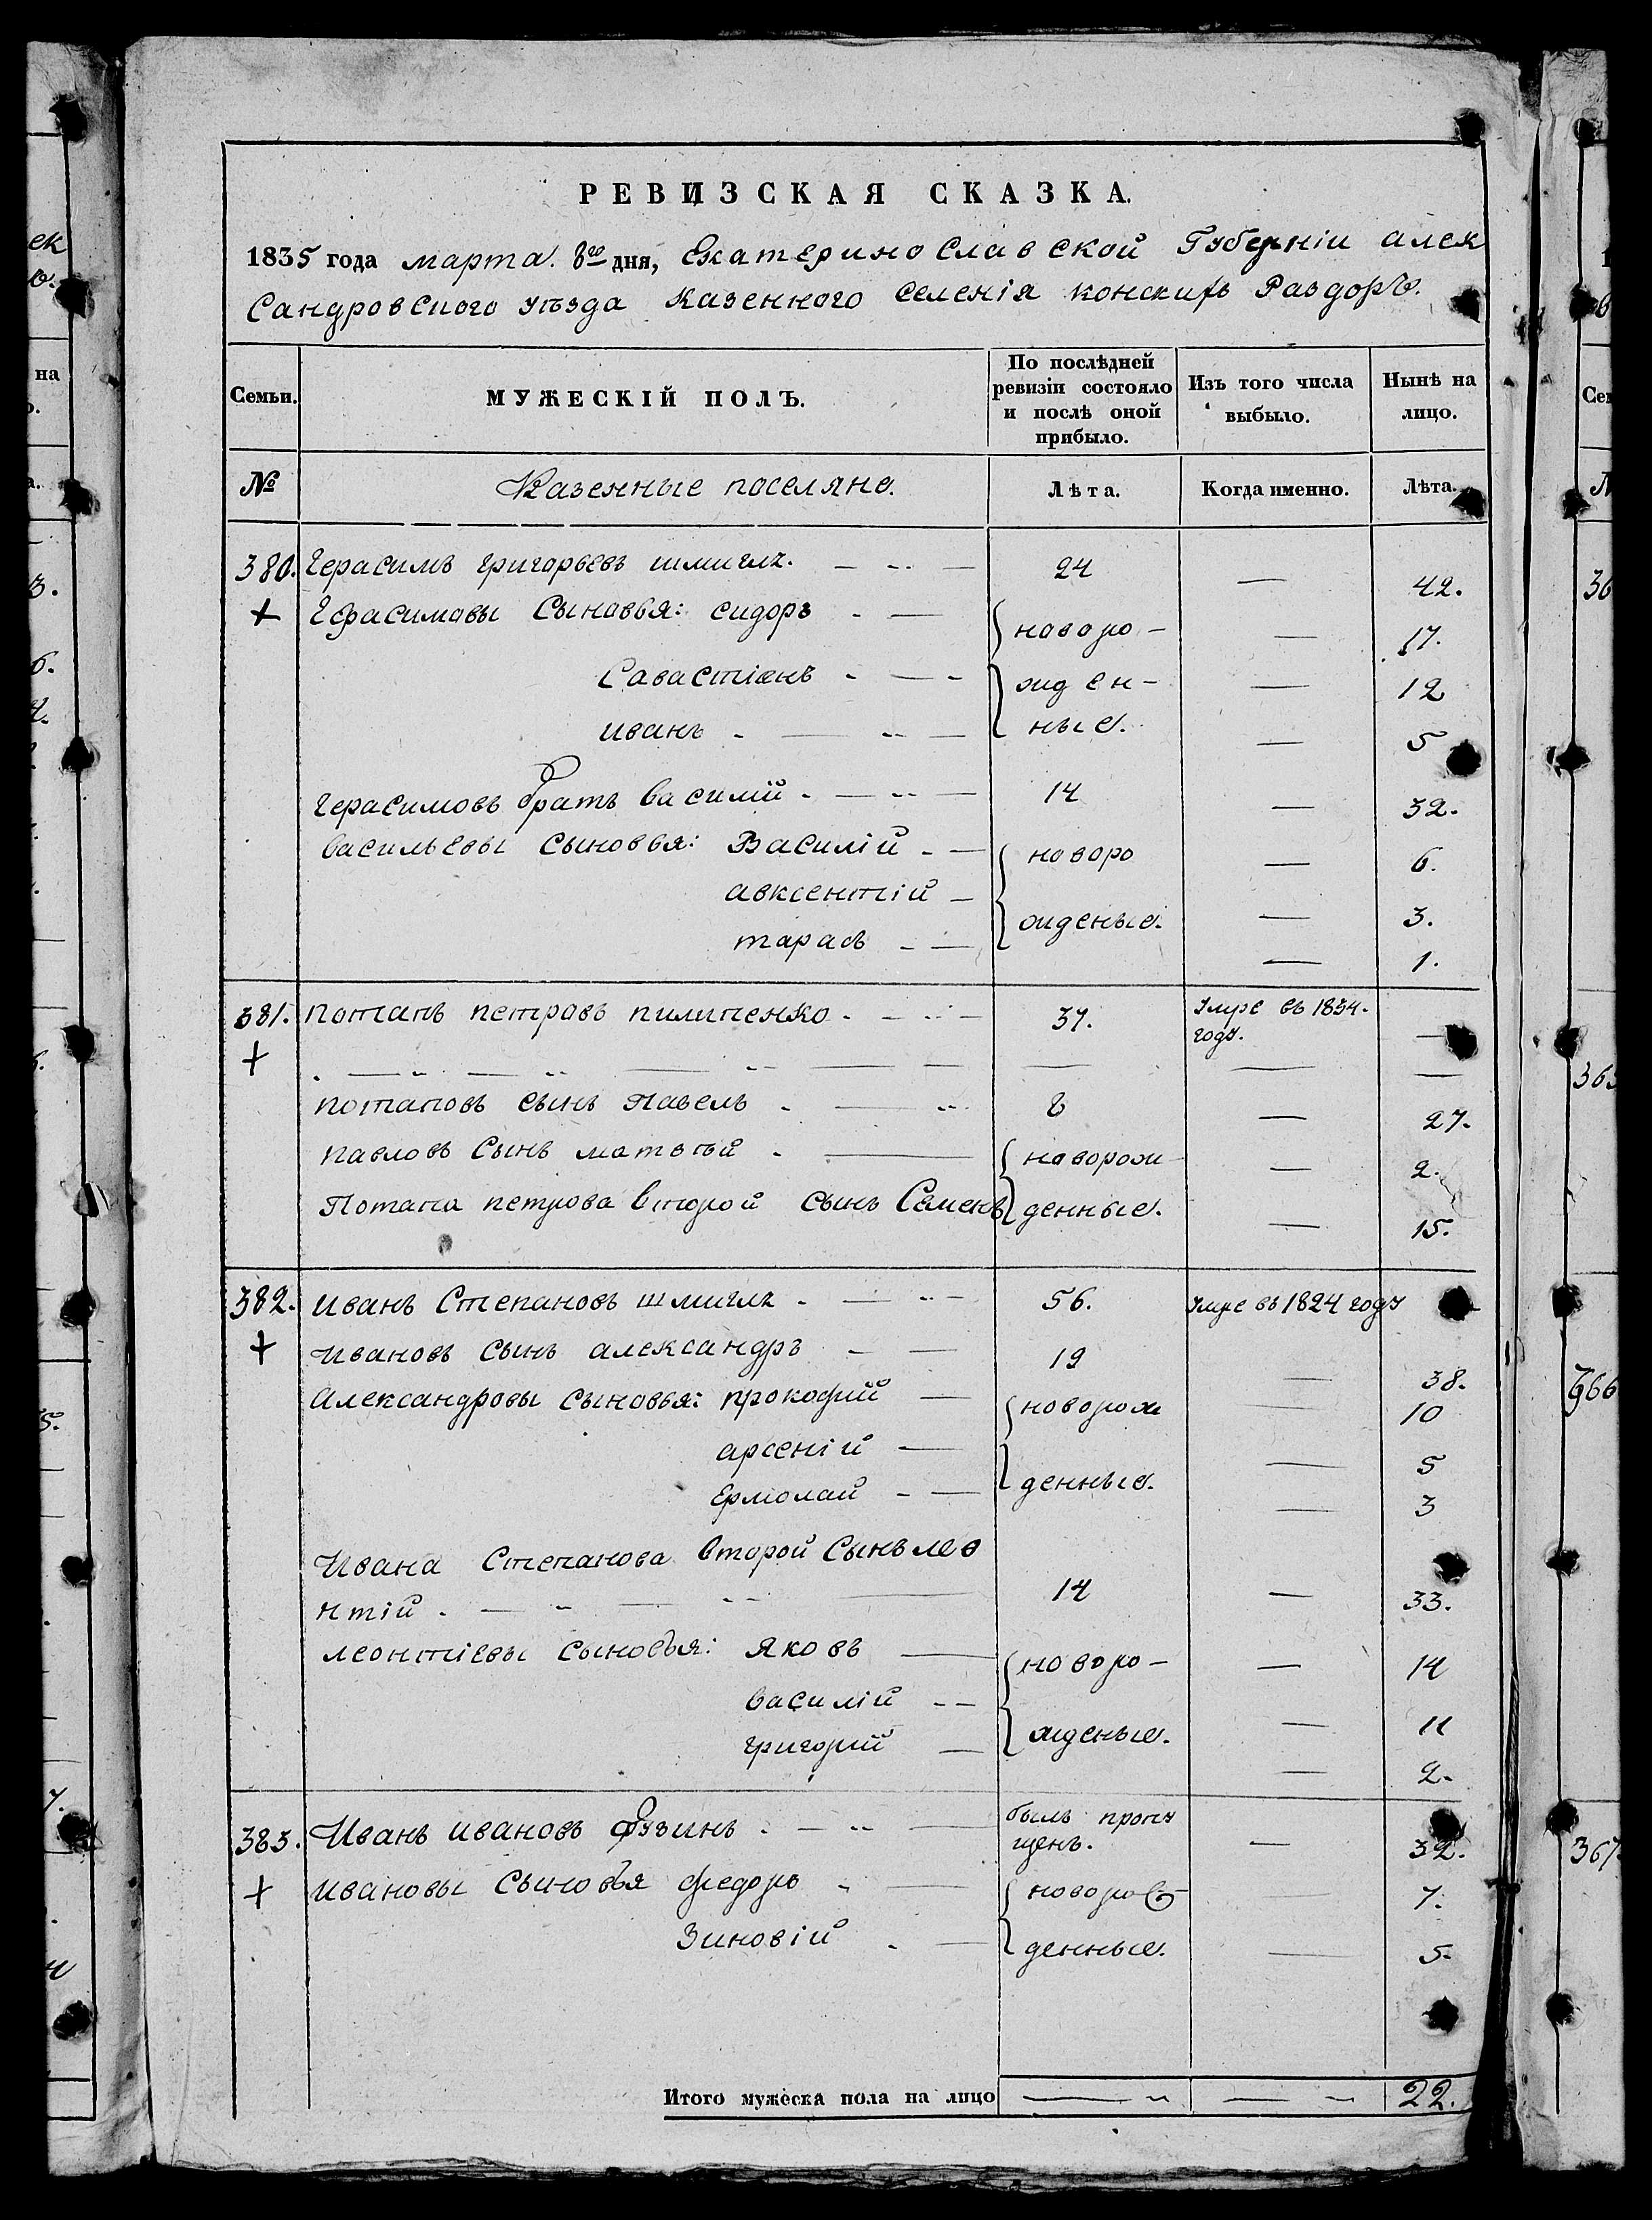 РЕВИЗСКАЯ СКАЗКА.
1835 года марта 8го дня, Екатеринославской Губерніи алек
сандровского уѣзда казенного селенія конскихъ Раздоръ.
Семьи. МУЖЕСКІЙ ПОЛЪ. По послѣдней ревизіи состояло и послѣ оной прибыло. Изъ того числа выбыло. Нынѣ на лицо.
№ Казенные поселяне. Лѣта. Когда именно. Лѣта.
380. Герасимъ григорьевъ шмигль. 24 — 42.
+ Герасимовы сыновья: сидоръ новоро- — 17.
Савастіянъ жден- — 12
иванъ ные. — 5
Герасимовъ братъ василій 14 — 32.
васильевы сыновья: Василій новоро — 6.
авксентій жденые. — 3.
тарасъ — 1.
381. потапъ петровъ пилипенко 37. умре въ 1834. году. —
+
потаповъ сынъ павелъ 8 — 27.
павловъ сынъ матвѣй новорож — 2.
Потапа петрова второй сынъ Семенъ денные. — 15.
382. иванъ Степановъ шмигль 56. умре въ 1824 году
+ ивановъ сынъ александръ 19 — 38.
александровы сыновья: прокофий новорож — 10
арсеній денные. — 5
ермолай — 3
Ивана Степанова второй сынъ лео
нтій 14 — 33.
леонтіевы сыновья: яковъ новоро- — 14
василій жденые. — 11
григорий — 2.
383. Иванъ ивановъ фузинъ былъ пропу щенъ. — 32.
+ ивановы сыновья федоръ — 7.
Зиновій денные. — 5.
Итого мужеска пола на лицо — — 22.